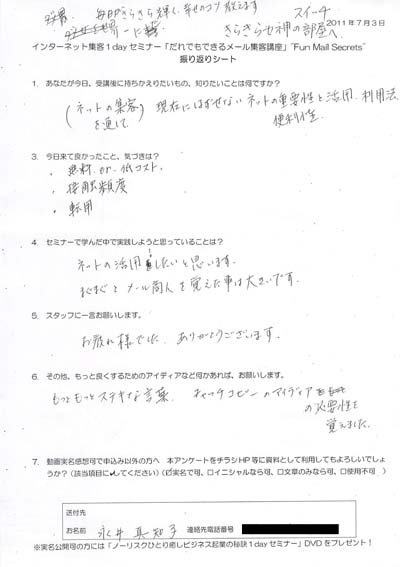 毎日きらきら輝く、幸せのコツ教えます
スイーツ
きらきら七神の部屋へ
2011年7月3日
インターネット集客1dayセミナー「だれでもできるメール集客講座」"Fun Mail Secrets"
振り返りシート
1. あなたが今日、受講後に持ちかえりたいもの、知りたいことは何ですか？
(ネットの集客を通して) 現在にはずせないネットの重要性と活用、利用法
便利性
3. 今日来て良かったこと、気づきは？
・無料、か、低コスト、
・接触頻度
・転用
4. セミナーで学んだ中で実践しようと思っていることは？
ネットの活用！したいと思います。
まぐまぐとメール商人を覚えた事は大きいです。
5. スタッフに一言お願いします。
お疲れ様でした。ありがとうございます。
6. その他、もっと良くするためのアイディアなど何かあれば、お願いします。
もっともっとステキな言葉、キャッチコピーのアイディア
の必要性を
覚えました。
7. 動画実名感想可で申込み以外の方へ 本アンケートをチラシHP等に資料として利用してもよろしいでしょ
うか？(該当項目に✓してください) (☑実名で可、□イニシャルなら可、□文章のみなら可、□使用不可 )
送付先
お名前 永井 真知子 連絡先電話番号
※実名公開可の方には「ノーリスクひとり癒しビジネス起業の秘訣1dayセミナー」DVDをプレゼント！